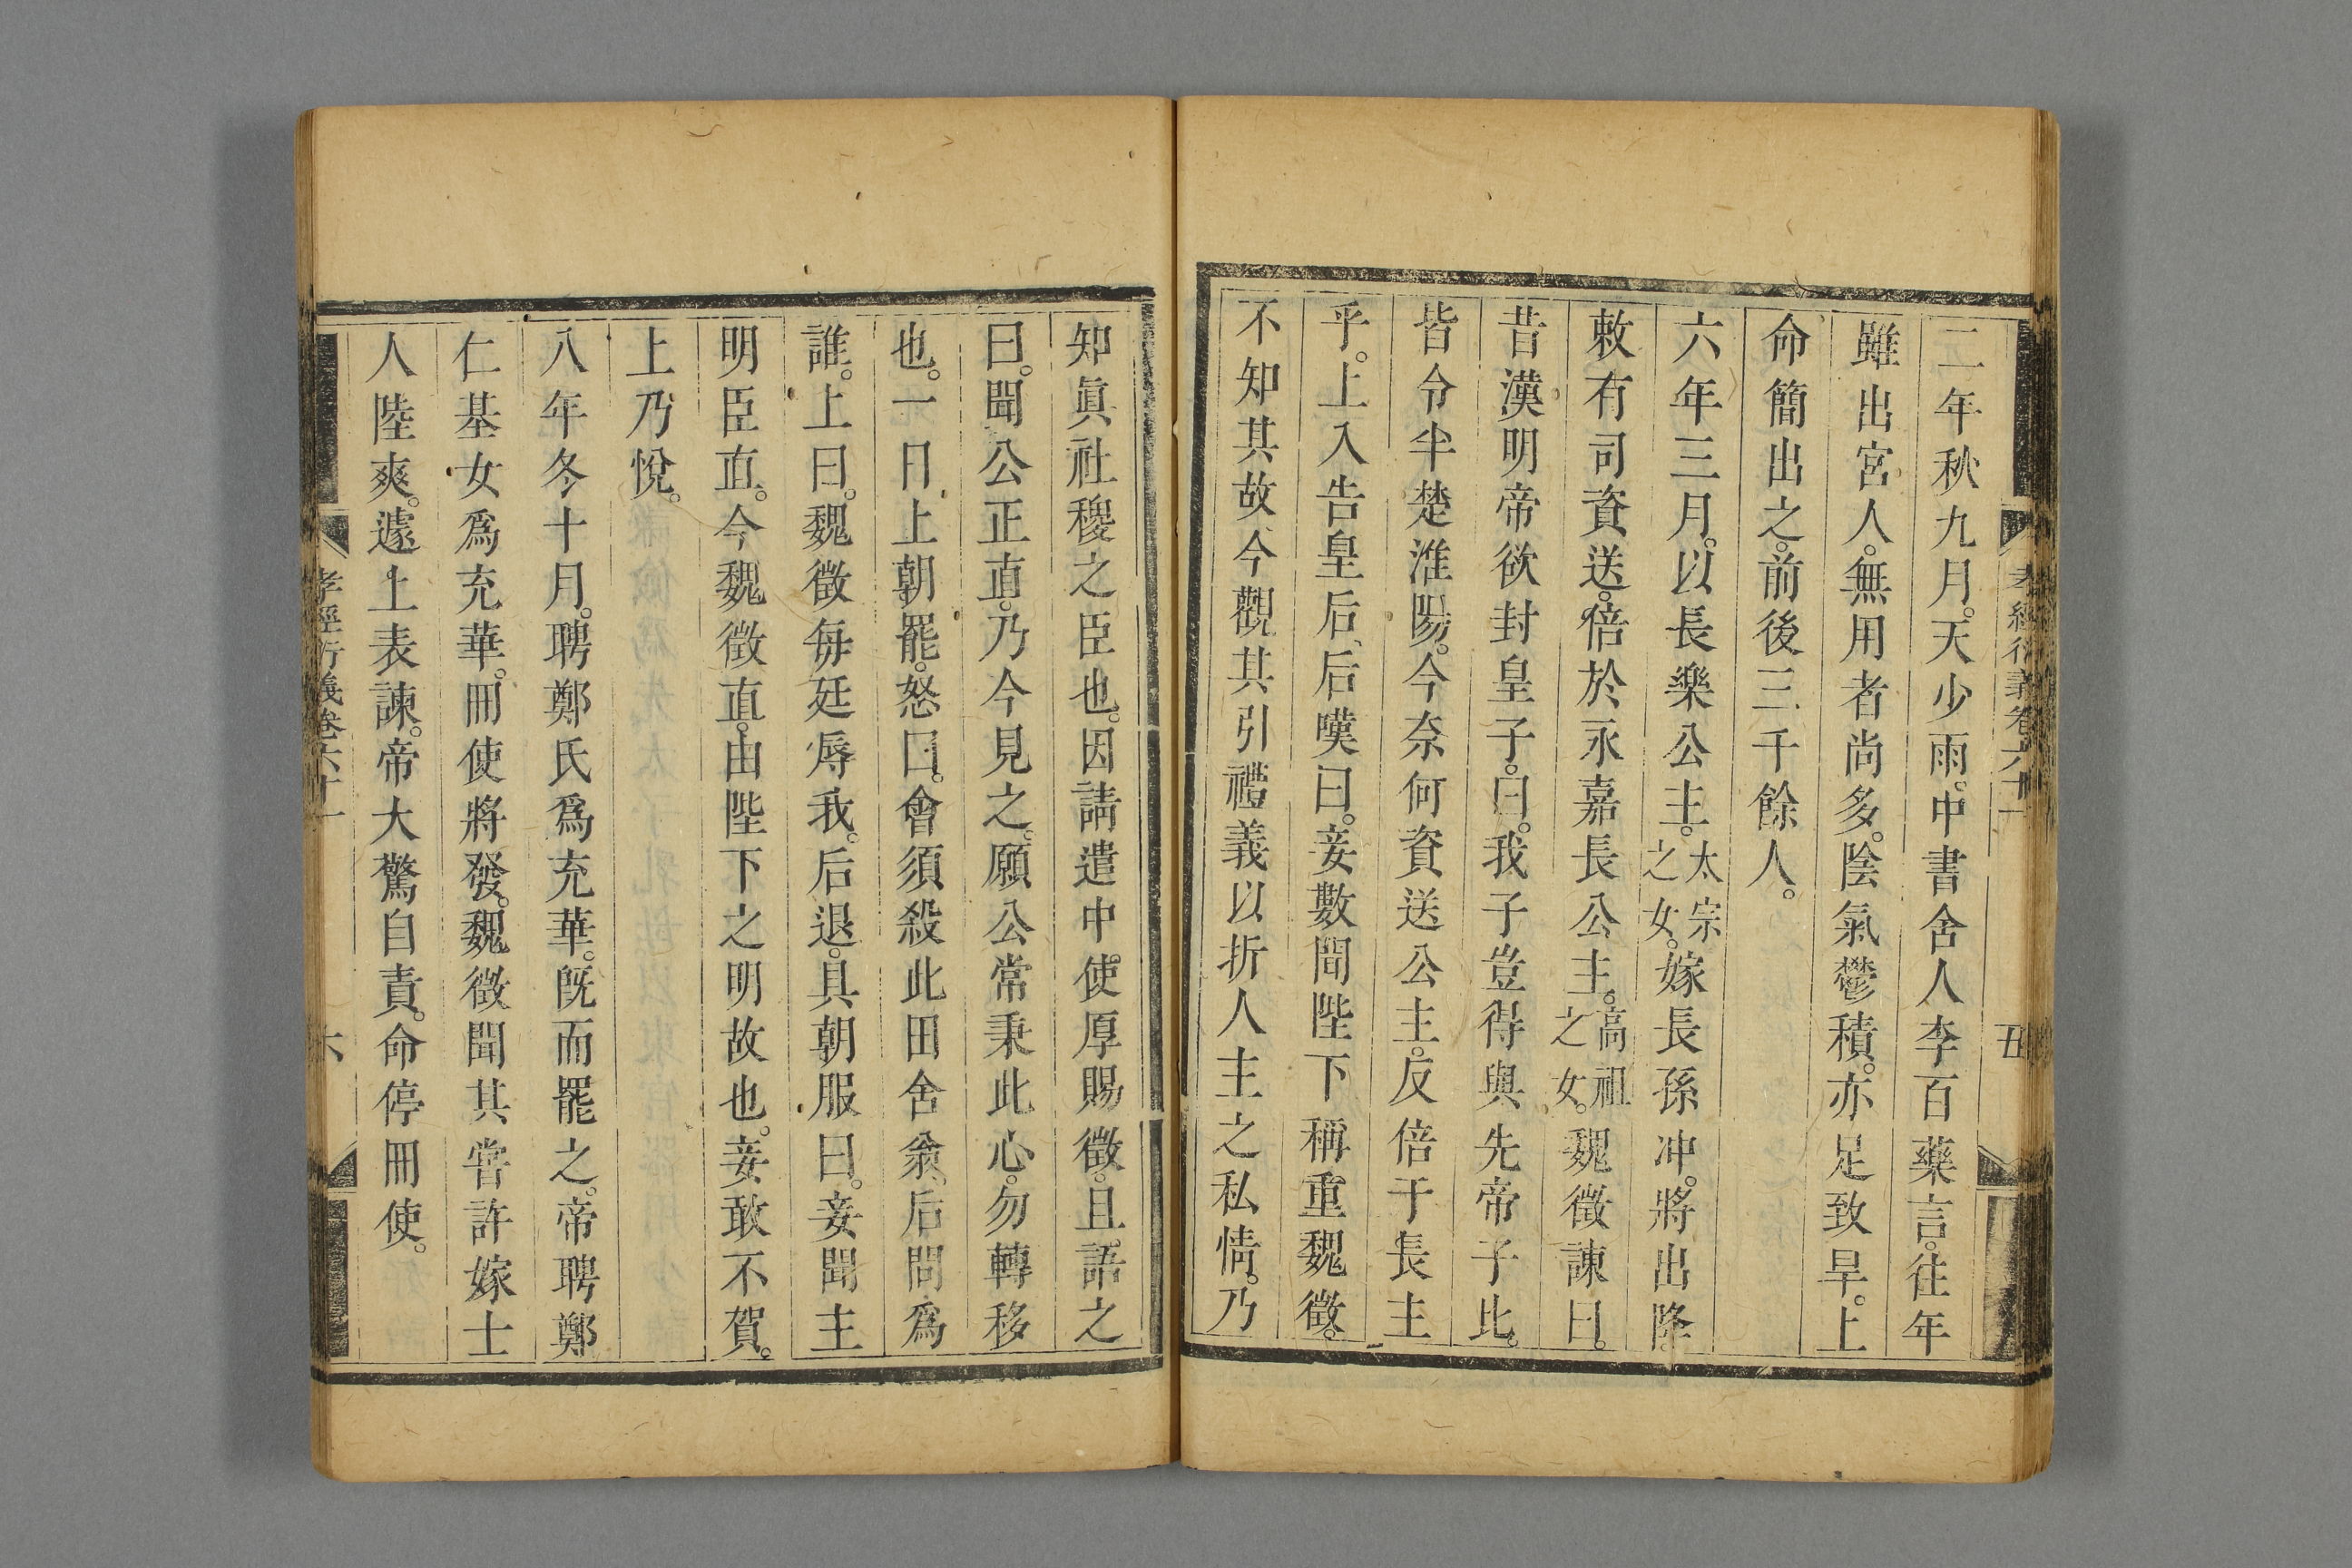 孝經衍義卷六十一
五
二年秋九月。天少雨。中書舍人李百藥言。往年
雖出宮人。無用者尚多。陰氣鬱積。亦足致旱。上
命簡出之。前後三千餘人。
六年三月。以長樂公主。太宗之女。嫁長孫沖。將出降。
敕有司資送。倍於永嘉長公主。高祖之女。魏徵諫曰。
昔漢明帝欲封皇子。曰。我子豈得與先帝子比。
皆令半楚淮陽。今奈何資送公主。反倍于長主
乎。上入告皇后、后嘆曰。妾數聞陛下稱重魏徵。
不知其故、今觀其引禮義以折人主之私情。乃
知眞社稷之臣也。因請遣中使厚賜徵。且語之
曰。聞公正直。乃今見之。願公常秉此心。勿轉移
也。一日上朝罷。怒曰。會須殺此田舍翁。后問爲
誰。上曰。魏徵每廷辱我。后退。具朝服曰。妾聞主
明臣直。今魏徵直。由陛下之明故也。妾敢不賀。
上乃悅。
八年冬十月。聘鄭氏爲充華。旣而罷之。帝聘鄭
仁基女爲充華。冊使將發。魏徵聞其嘗許嫁士
人陸爽。遽上表諫。帝大驚自責。命停冊使。
孝經衍義卷六十一
六